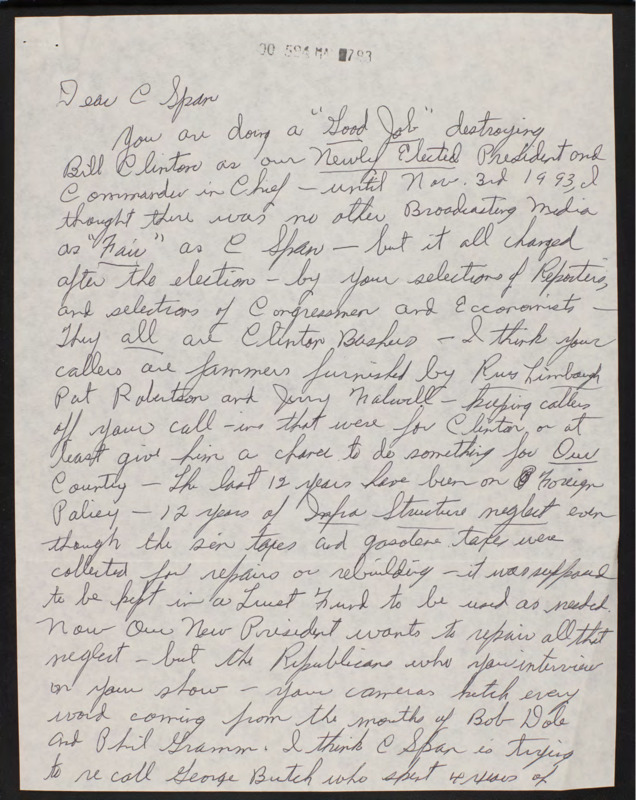 00 594 MAY 793
Dear C Span
You are doing a "Good Job" destroying
Bill Clinton as our Newly Elected President and
Commander in Chief - until Nov. 3rd 1993, I
thought there was no other Broadcasting Media
as "Fair" as C Span - but it all changed
after the election - by your selections of Reporters,
and selections of Congressmen and Ecconomists -
They all are Clinton Bashers - I think your
callers are jammers furnished by Rus Limbaugh
Pat Robertson and Jerry Falwell - keeping callers
off your call-ins that were for Clinton, or at
least give him a chance to do something for Our
Country - The last 12 years have been on Foreign
Policy - 12 years of Infra Structure neglect even
though the sin taxes and gasolene taxes were
collected for repairs or rebuilding - it was supposed
to be kept in a Trust Fund to be used as needed.
Now Our New President wants to repair all that
neglect - but the Republicans who you interview
on your show - your cameras hitch every
word coming from the mouths of Bob Dole
and Phil Gramm. I think C Span is trying
to re call George Butch who spent 4 years of